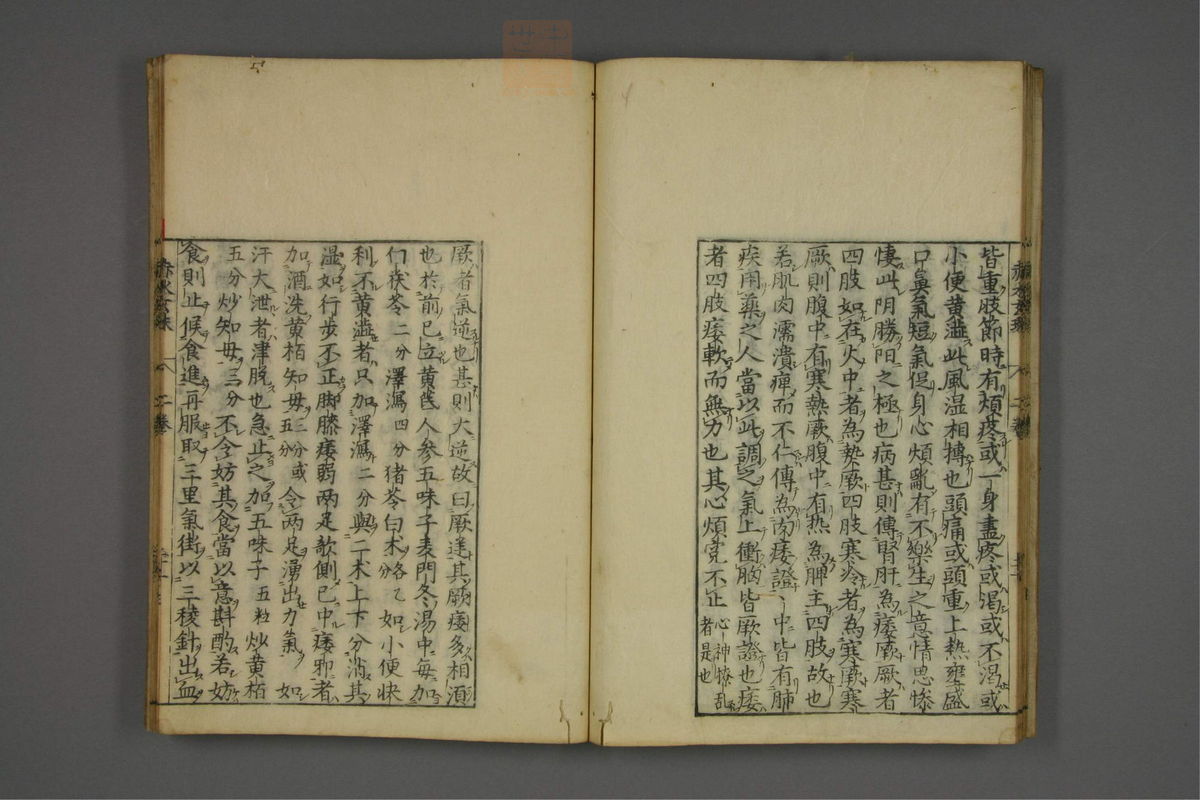 皆重肢節時有煩疼或一身盡疼或渴或不渴或
小便黄澁此風湿相摶也頭痛或頭重上熱壅盛
口鼻氣短氣促身心煩亂有不樂生之意情思惨
悽此阴勝阳之極也病甚則傳腎肝為痿厥厥者
四肢如在火中者為熱厥四肢寒冷者為寒厥寒
厥則腹中有寒熱厥腹中有热為脾主四肢故也
若肌肉濡潰痺而不仁傳為肉痿證〻中皆有肺
疾用藥之人當以此調之氣上衝胸皆厥證也痿
者四肢痿軟而無力也其心煩寃不止心神憭乱者是也
厥者氣逆也甚則大逆故曰厥逆其厥痿多相湏
也於前已立黄芪人参五味子麦門冬湯中每加
白茯苓二分澤瀉四分猪苓白术各一分如小便快
利不黄澁者只加澤瀉二分與二术上下分消其
湿如行步不正脚膝痿弱两足欹側已中痿邪者
加酒洗黄栢知母三分或五分令两足湧出力氣如
汗大泄者津脱也急止之加五味子五粒炒黄栢
五分炒知母三分不令妨其食當以意斟酌若妨
食則止候食進再服取三里氣街以三稜針出血
二卷